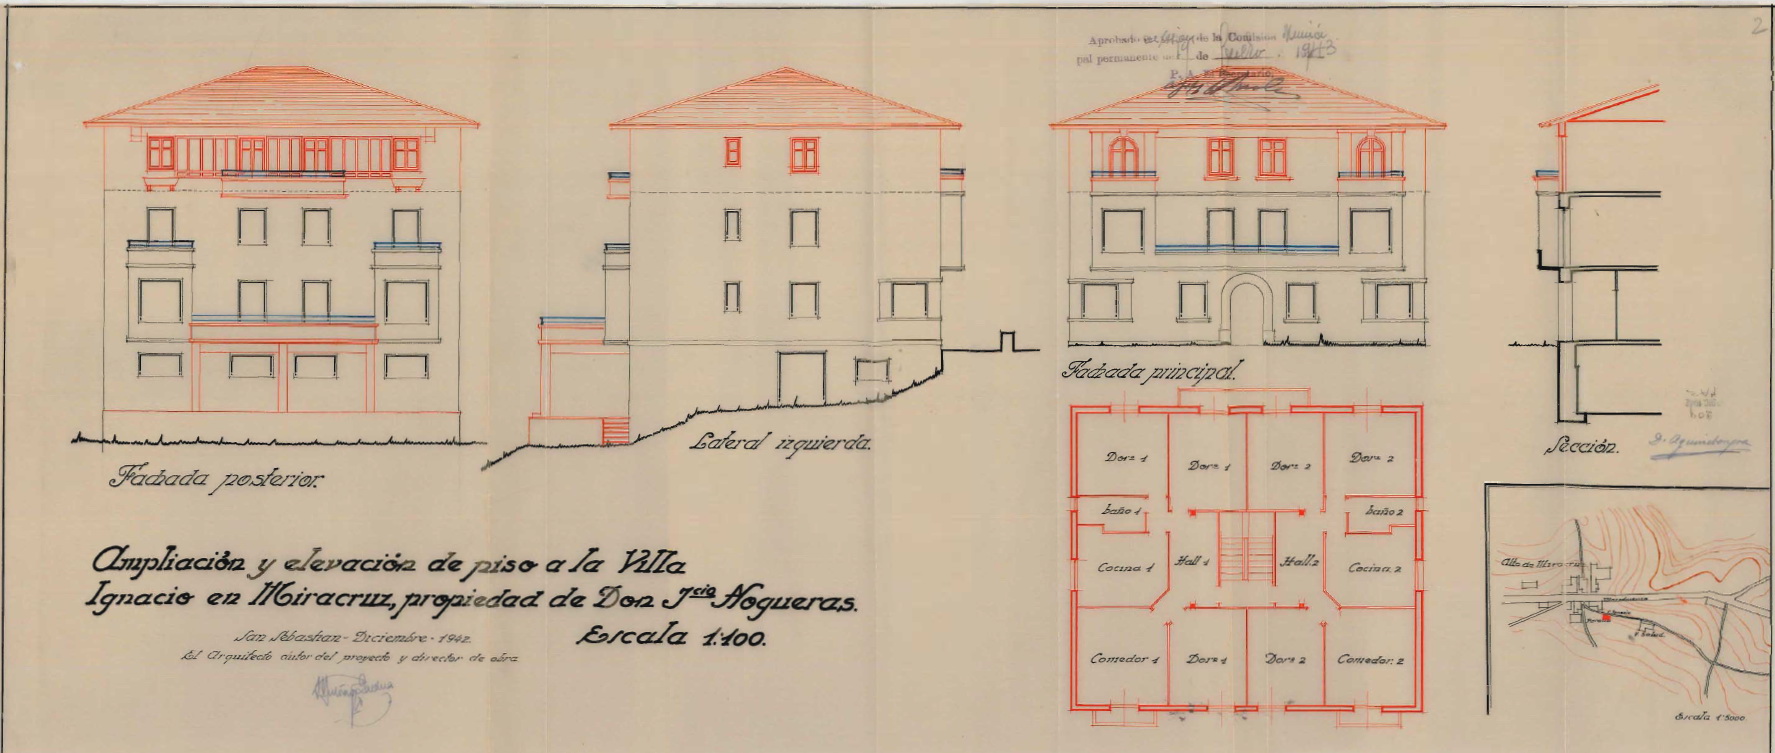 2
Aprobado en de la Comisión Munici
pal permanente de 1943
P. A. El Secretario,
Fachada posterior.
Lateral izquierda.
Fachada principal.
Sección.
Dorm 1
Dorm 1
Dorm 2
Dorm 2
baño 1
baño 2
Cocina 1
Hall 1
Hall 2
Cocina 2
Comedor 1
Dorm 1
Dorm 2
Comedor 2
Alto de Miracruz
Escala 1:5000
Ampliación y elevación de piso a la Villa
Ignacio en Miracruz, propiedad de Don Jcio Nogueras.
Escala 1:100.
San Sebastian - Diciembre - 1942
El Arquitecto autor del proyecto y director de obra